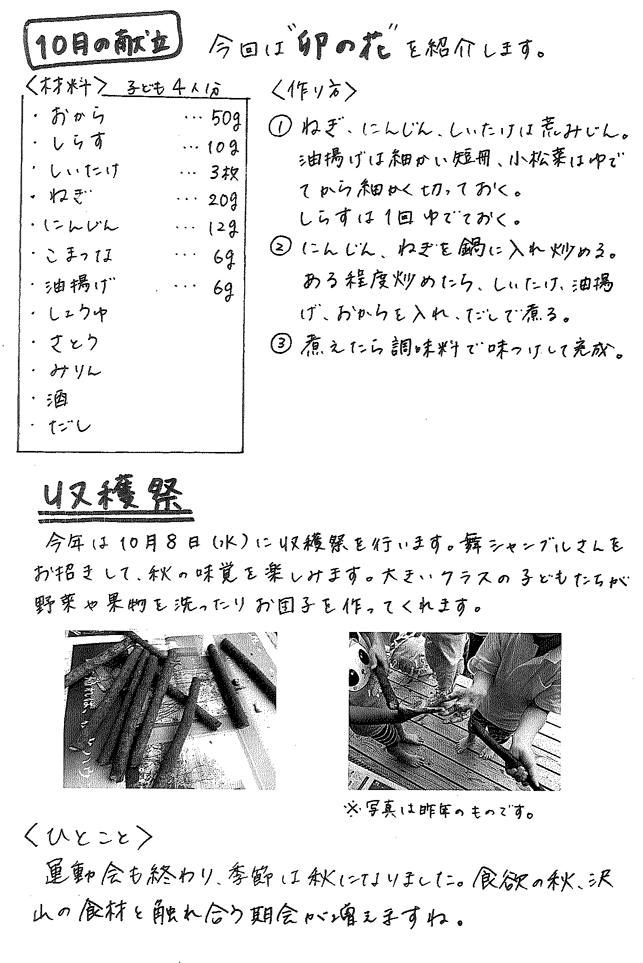 10月の献立
今回は"卯の花"を紹介します。
〈材料〉 子ども4人分
・おから …50g
・しらす …10g
・しいたけ …3枚
・ねぎ …20g
・にんじん …12g
・こまつな …6g
・油揚げ …6g
・しょうゆ
・さとう
・みりん
・酒
・だし
〈作り方〉
① ねぎ、にんじん、しいたけは荒みじん。
油揚げは細かい短冊、小松菜はゆで
てから細かく切っておく。
しらすは1回ゆでておく。
② にんじん、ねぎを鍋に入れ炒める。
ある程度炒めたら、しいたけ、油揚
げ、おからを入れ、だしで煮る。
③ 煮えたら調味料で味つけして完成。
収穫祭
今年は10月8日(水)に収穫祭を行います。舞ジャンブルさんを
お招きして、秋の味覚を楽しみます。大きいクラスの子どもたちが
野菜や果物を洗ったりお団子を作ってくれます。
※写真は昨年のものです。
〈ひとこと〉
運動会も終わり、季節は秋になりました。食欲の秋、沢
山の食材と触れ合う期会が増えますね。